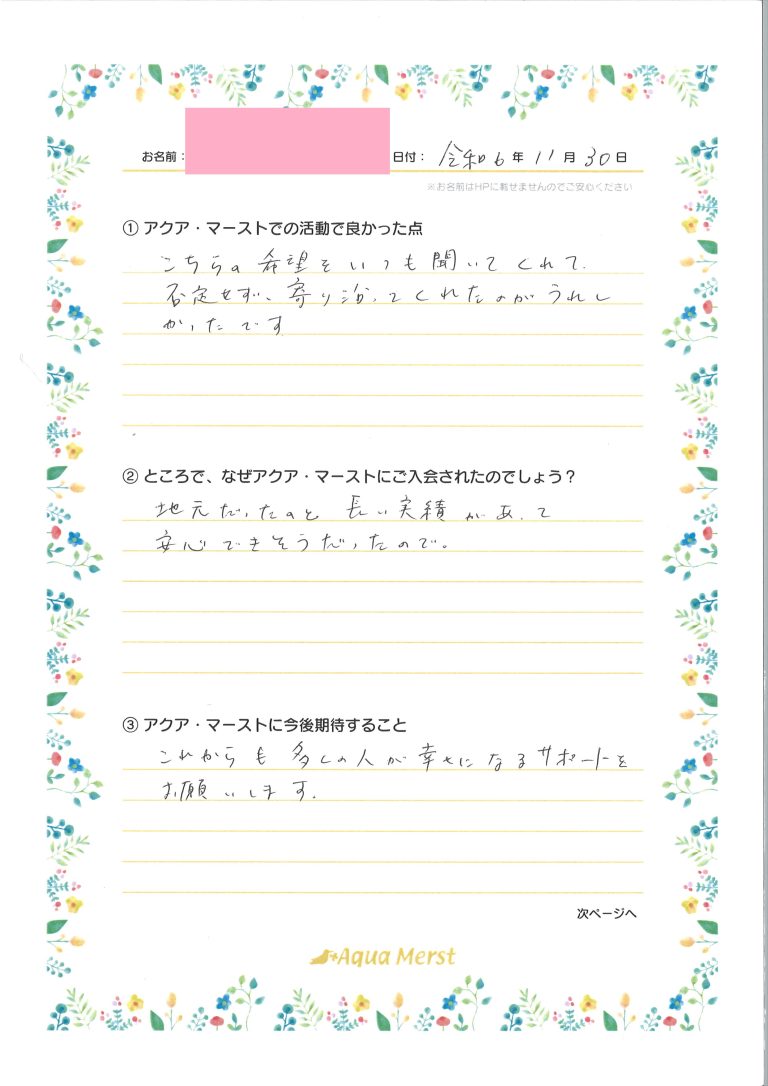 お名前： 日付： 令和6年 11月 30日
※お名前はHPに載せませんのでご安心ください
① アクア・マーストでの活動で良かった点
こちらの希望をいつも聞いてくれて、
否定せず、寄り沿ってくれたのがうれし
かったです
② ところで、なぜアクア・マーストにご入会されたのでしょう？
地元だったのと 長い実績があって
安心できそうだったので。
③ アクア・マーストに今後期待すること
これからも多くの人が幸せになるサポートを
お願いします。
次ページへ
Aqua Merst